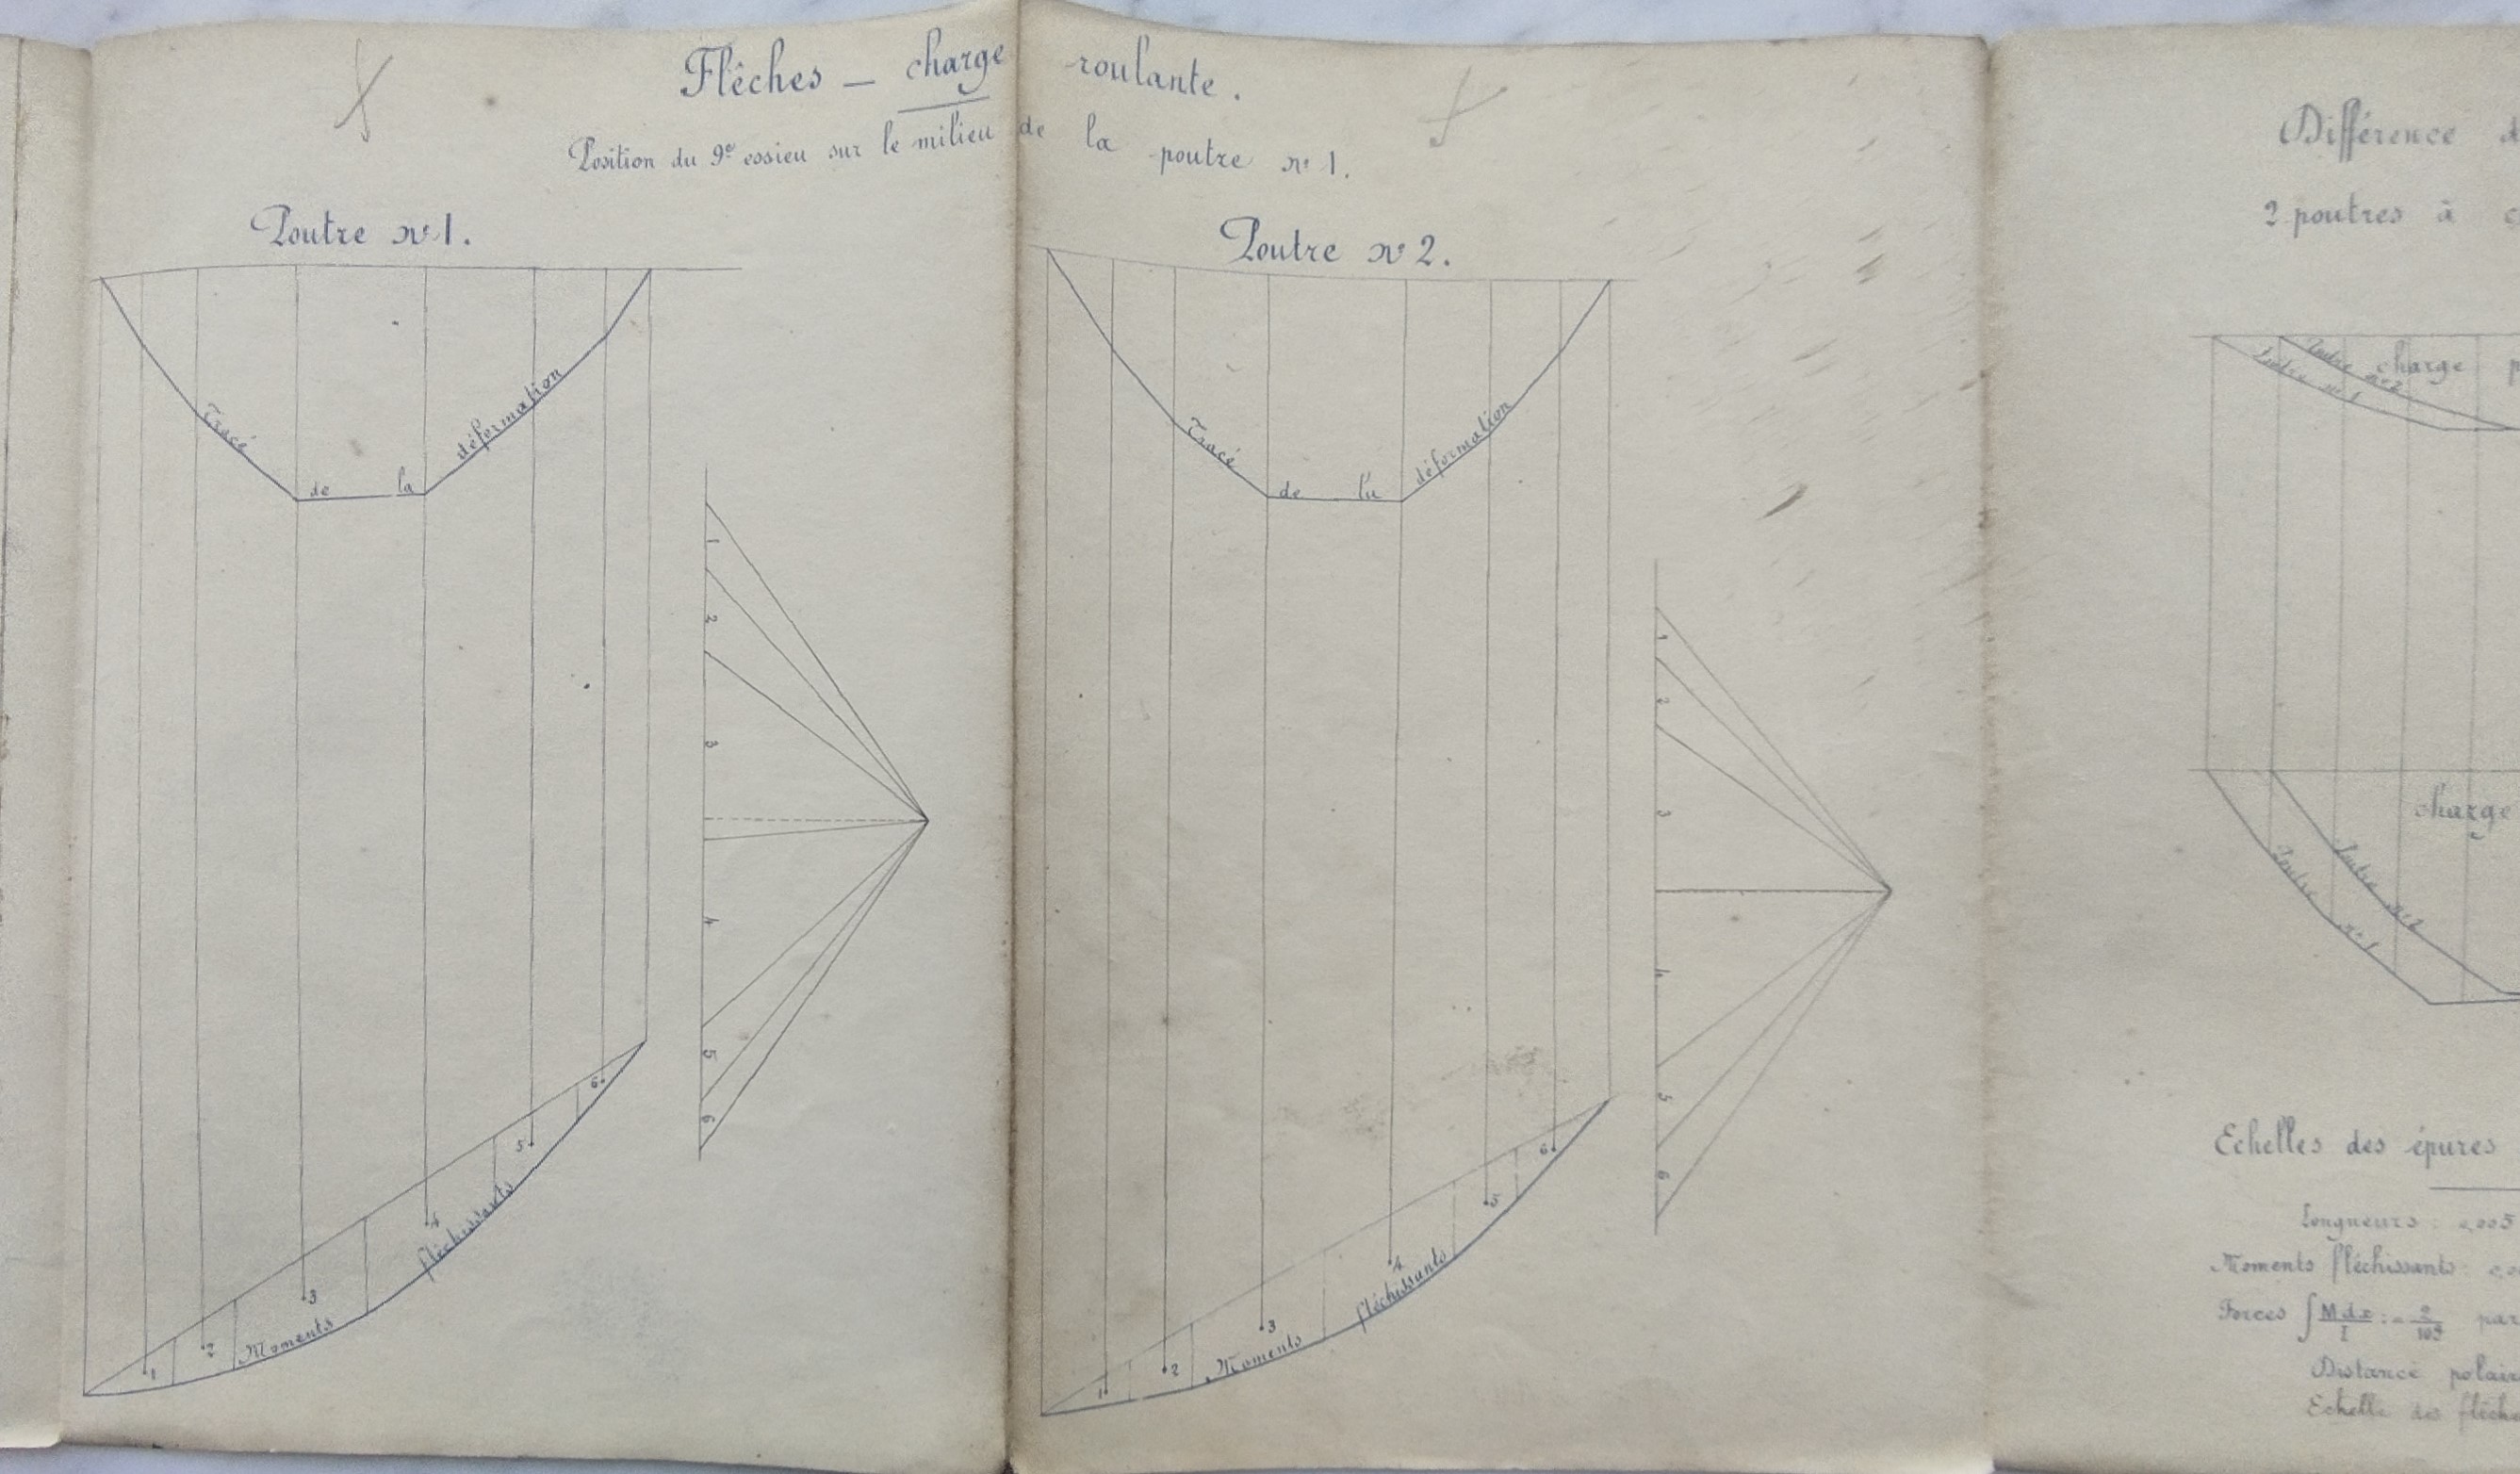 Flêches — charge roulante.
Position du 9e essieu sur le milieu de la poutre no 1.
Poutre no 1.
Tracé de la déformation
1
2
3
4
5
6
1
2
3
4
5
6
Moments fléchissants
Poutre no 2.
Tracé de la déformation
1
2
3
4
5
6
1
2
3
4
5
6
Moments fléchissants
Différence d
2 poutres à c
Poutre no 2
Poutre no 1
charge p
charge
Poutre no 2
Poutre no 1
Echelles des épures
Longueurs : 0,005
Moments fléchissants : 0,0
Forces ∫ M dx / I : = 2 / 10⁹ par
Distance polair
Echelle des flêche